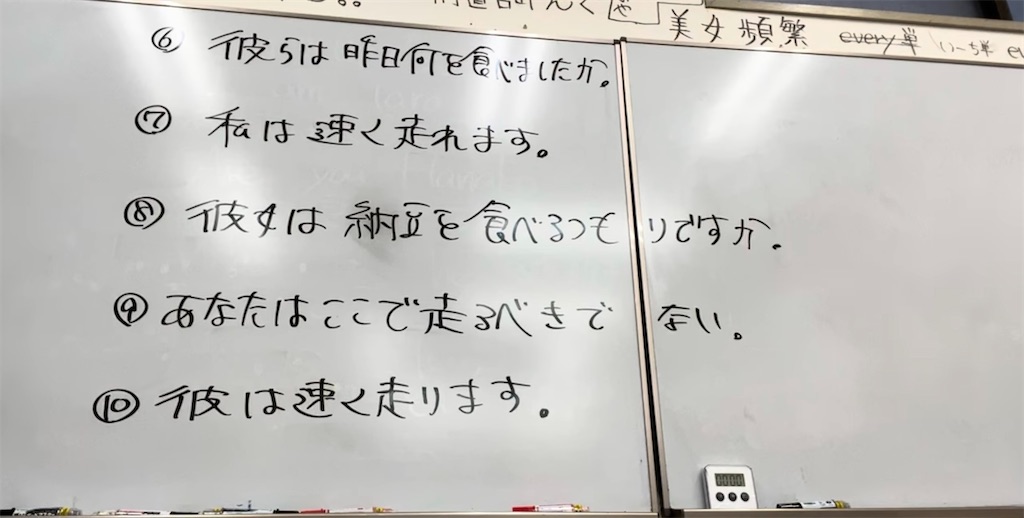 美女頻繁 every単
⑥ 彼らは昨日何を食べましたか。
⑦ 私は速く走れます。
⑧ 彼女は納豆を食べるつもりですか。
⑨ あなたはここで走るべきでない。
⑩ 彼は速く走ります。